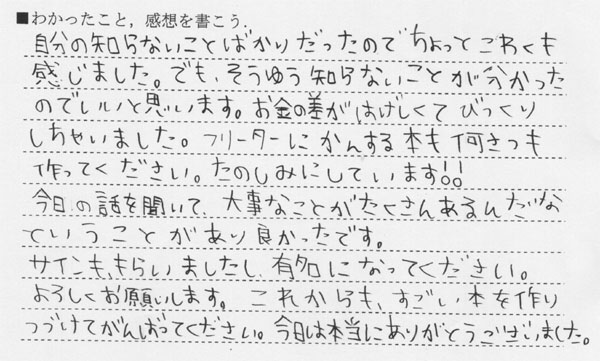 ■わかったこと，感想を書こう．
自分の知らないことばかりだったのでちょっとこわくも
感じました。でも、そうゆう知らないことが分かった
のでいいと思います。お金の差がはげしくてびっくり
しちゃいました。フリーターにかんする本も何さつも
作ってください。たのしみにしています!!
今日の話を聞いて、大事なことがたくさんあるんだな
ということがあり良かったです。
サインも、もらいましたし、有名になってください。
よろしくお願いします。これからも、すごい本を作り
つづけてがんばってください。今日は本当にありがとうございました。